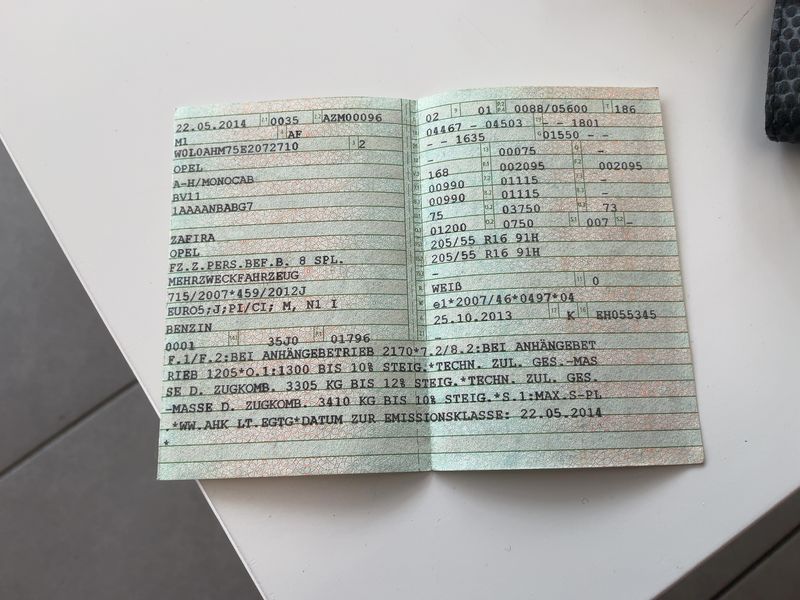 22.05.2014 0035 AZM00096
M1 AF
W0L0AHM75E2072710 2
OPEL
A-H/MONOCAB
BV11
1AAAANBABG7
ZAFIRA
OPEL
FZ.Z.PERS.BEF.B. 8 SPL.
MEHRZWECKFAHRZEUG
715/2007*459/2012J
EURO5;J;PI/CI; M, N1 I
BENZIN
0001 35J0 01796
02 01 0088/05600 186
04467 - 04503 - - 1801
- - 1635 01550 - -
00075 -
168 002095 002095
00990 01115 -
00990 01115 -
75 03750 73
01200 0750 007 -
205/55 R16 91H
205/55 R16 91H
-
WEIß 0
e1*2007/46*0497*04
25.10.2013 K EH055345
-
F.1/F.2:BEI ANHÄNGEBETRIEB 2170*7.2/8.2:BEI ANHÄNGEBET
RIEB 1205*O.1:1300 BIS 10% STEIG.*TECHN. ZUL. GES.-MAS
SE D. ZUGKOMB. 3305 KG BIS 12% STEIG.*TECHN. ZUL. GES.
-MASSE D. ZUGKOMB. 3410 KG BIS 10% STEIG.*S.1:MAX.S-PL
.*WW.AHK LT.EGTG*DATUM ZUR EMISSIONSKLASSE: 22.05.2014
*